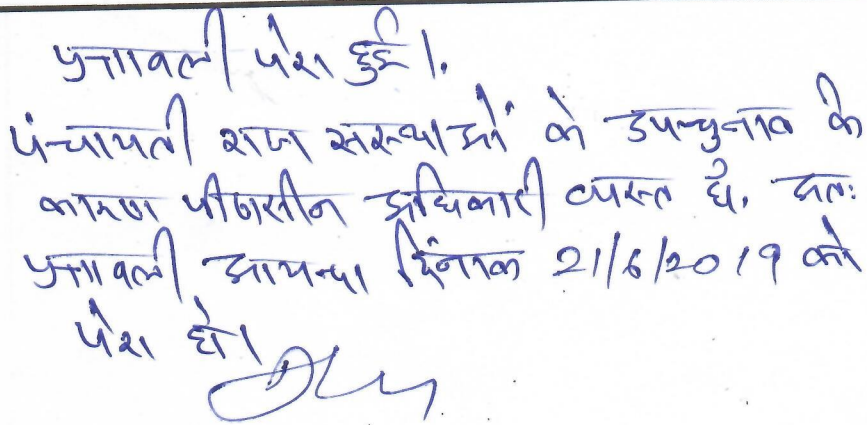 पत्रावली पेश हुई।
पंचायती राज संस्थाओं के उपचुनाव के
कारण पीठासीन अधिकारी व्यस्त है, अतः
पत्रावली आयन्दा दिंनाक 21/6/2019 को
पेश हो।